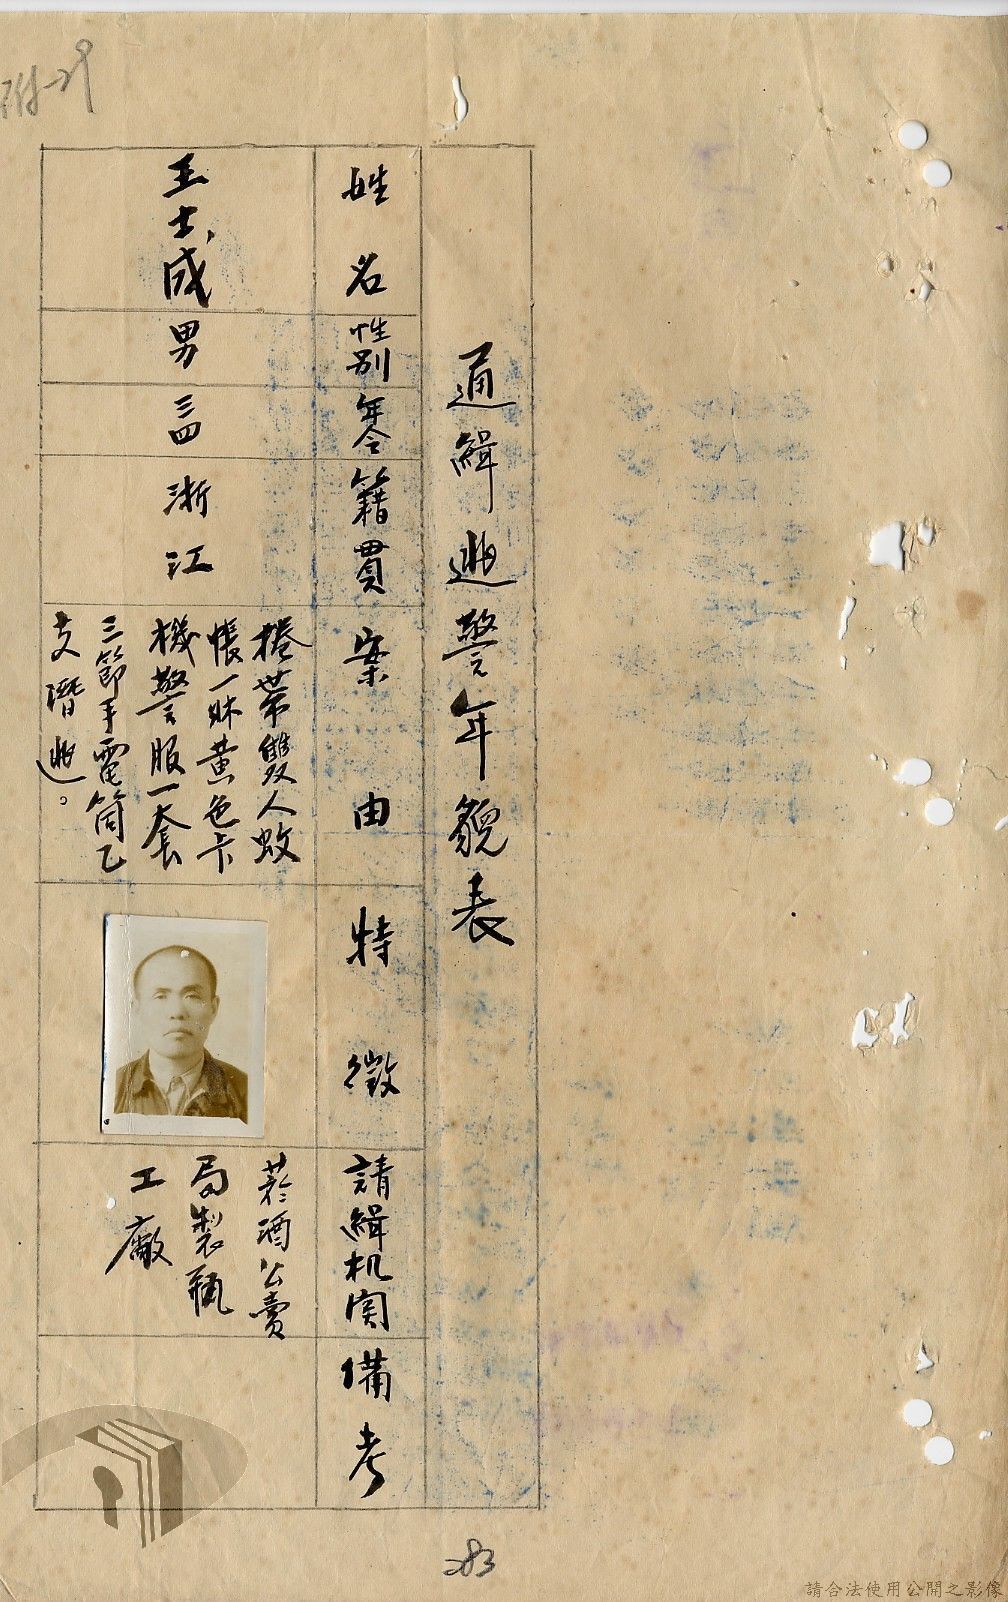 附-29
通緝逃警年貌表
姓名
性別
年令
籍貫
案由
特徵
請緝机関
備考
王士成
男
三四
浙江
捲帶雙人蚊
帳一牀黃色卡
機警服一套
三節手電筒乙
支潛逃。
菸酒公賣
局製瓶
工廠
283
請合法使用公開之影像